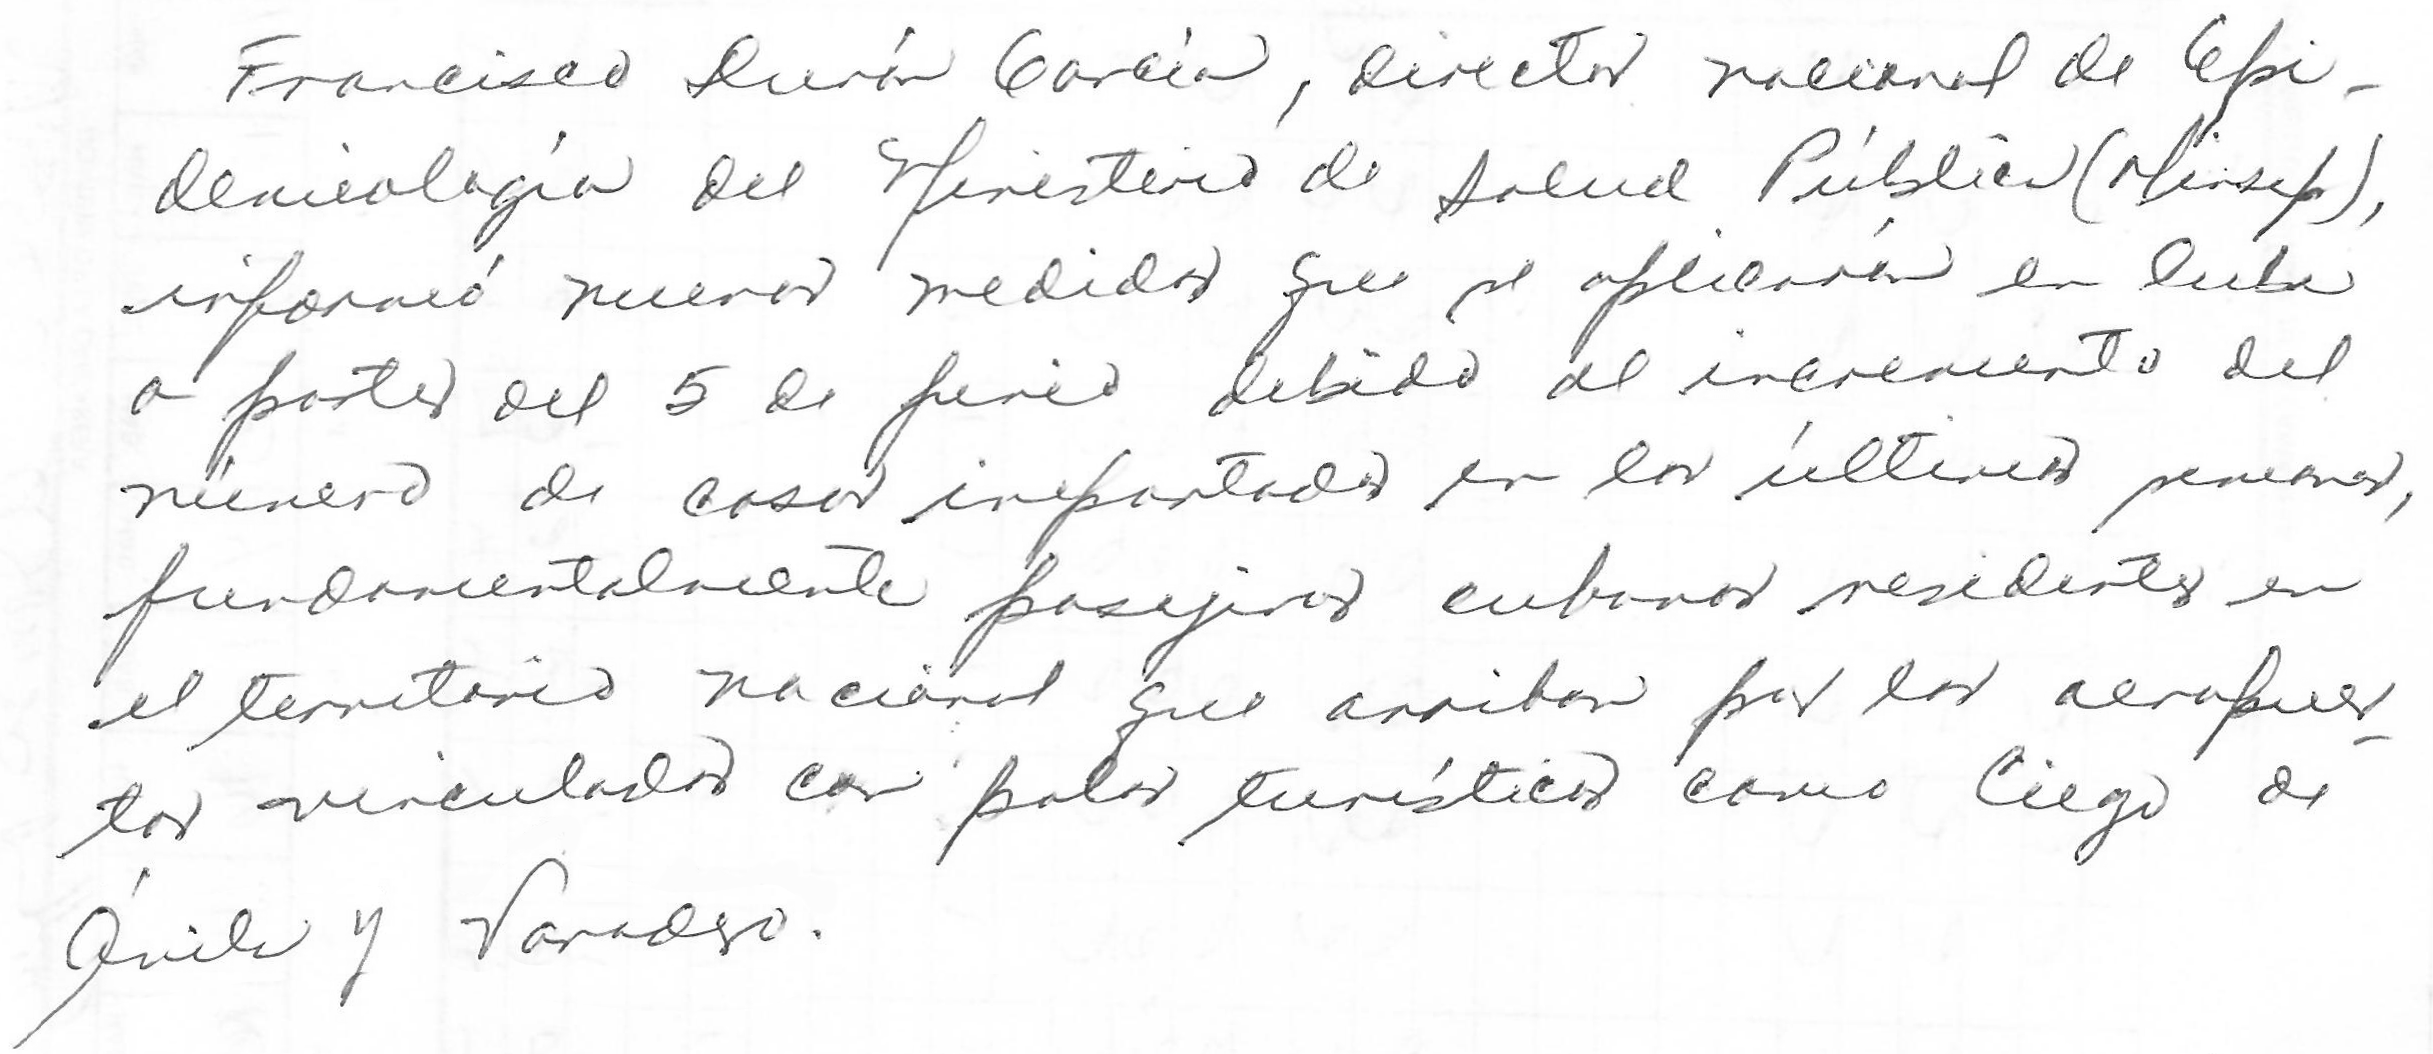 Francisco Durán García, director nacional de Epi-
demiología del Ministerio de Salud Pública (Minsap),
informó nuevas medidas que se aplicarán en Cuba
a partir del 5 de junio debido al incremento del
número de casos importados en las últimas semanas,
fundamentalmente pasajeros cubanos residentes en
el territorio nacional que arriban por los aeropuer-
tos vinculados con polos turísticos como Ciego de
Ávila y Varadero.